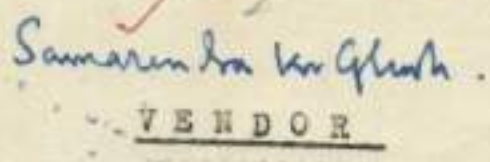 Samarendra Kr Ghosh.
VENDOR